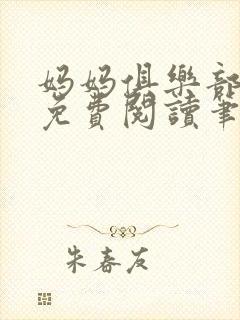 妈妈俱樂部
免費閱讀筆
朱春友